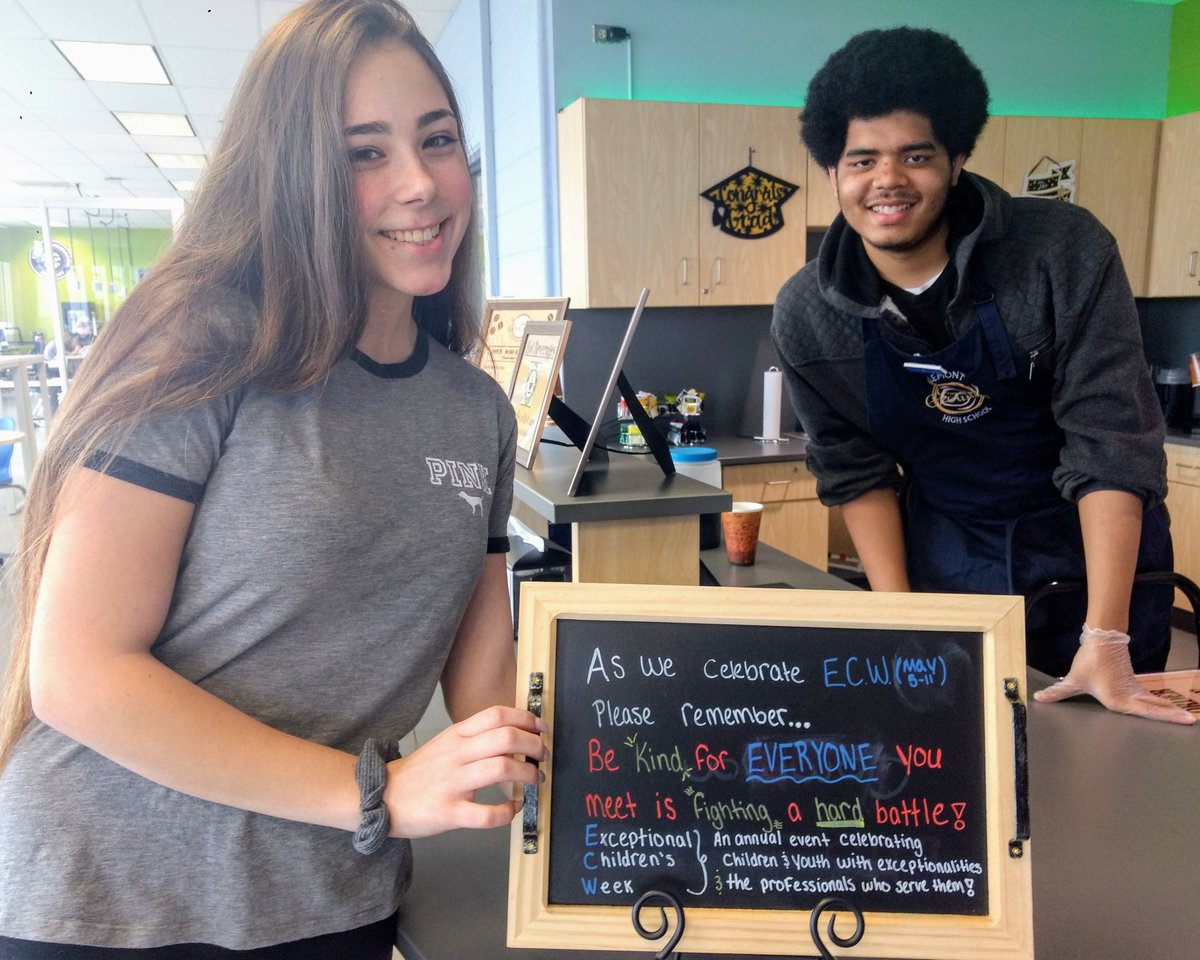 Congrats
Grad
PINK
HIGH SCHOOL
As we celebrate E.C.W. (MAY 5-11)
Please remember...
Be Kind for EVERYONE you
meet is fighting a hard battle!
Exceptional } An annual event celebrating
Children's children & youth with exceptionalities
Week & the professionals who serve them!